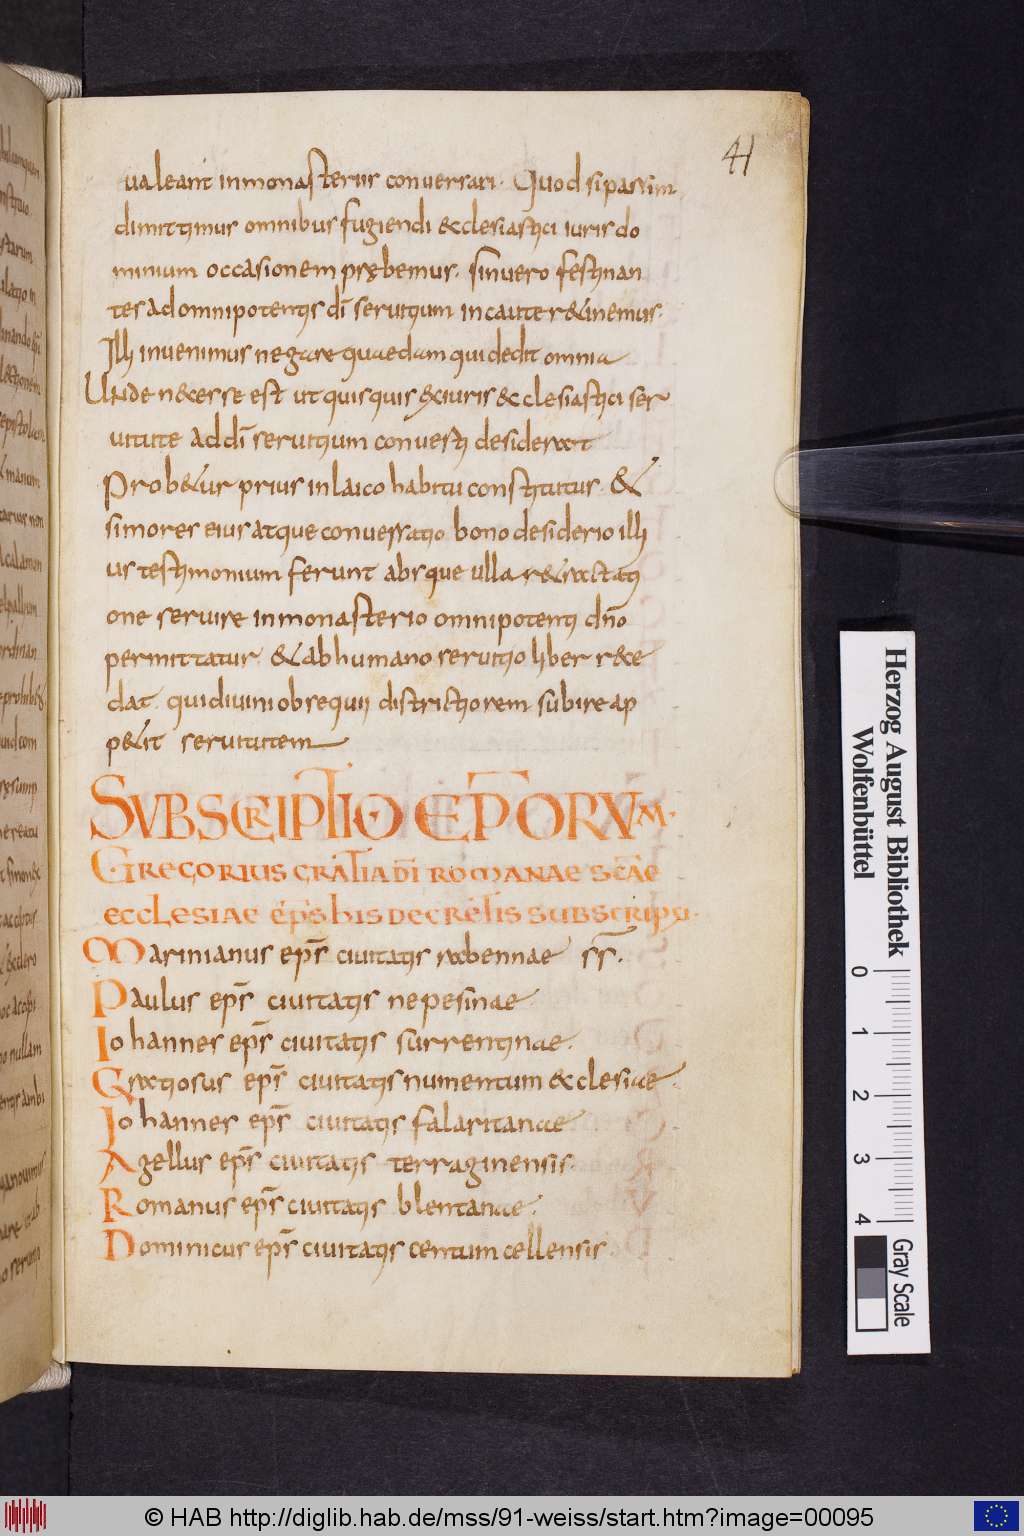 41
ualeant inmonasteriis conuersari. Quod sipassim
dimittimus omnibus fugiendi ecclesiastici iuris do
minium occasionem prębemus. sinuero festinan
tes adomnipotentis dī seruitium incaute retinemus.
Illi inuenimur negare quaedam qui dedit omnia
Unde necesse est ut quisquis ex iuris ecclesiastici ser
uitute addī seruitium conuesti desiderat
Probetur prius inlaico habitu constitutus. &
simores eius atque conuersatio bono desiderio illi
us testimonium ferunt absque ulla retractati
one seruire inmonasterio omnipotenti dño
permittatur. & abhumano seruitio liber rece
dat. quidiuini obsequii districtiorem subire ap
petit seruitutem
SUBSCRIPTIO EP̄ORUM.
GREGORIUS GRATIA DĪ ROMANAE SC̄AE
ECCLESIAE EP̄S HIS DECRETIS SUBSCRIPSI.
Marinianus ep̄s ciuitatis rabennae ss̄.
Paulus ep̄s ciuitatis nepesinae.
Iohannes ep̄s ciuitatis surrentinae.
Gratiosus ep̄s ciuitatis numentum ecclesiae.
Iohannes ep̄s ciuitatis falaritanae
Agellus ep̄s ciuitatis terraginensis.
Romanus ep̄s ciuitatis blentanae.
Dominicus ep̄s ciuitatis centum cellensis.
Herzog August Bibliothek
Wolfenbüttel
0 1 2 3 4
Gray Scale
© HAB http://diglib.hab.de/mss/91-weiss/start.htm?image=00095